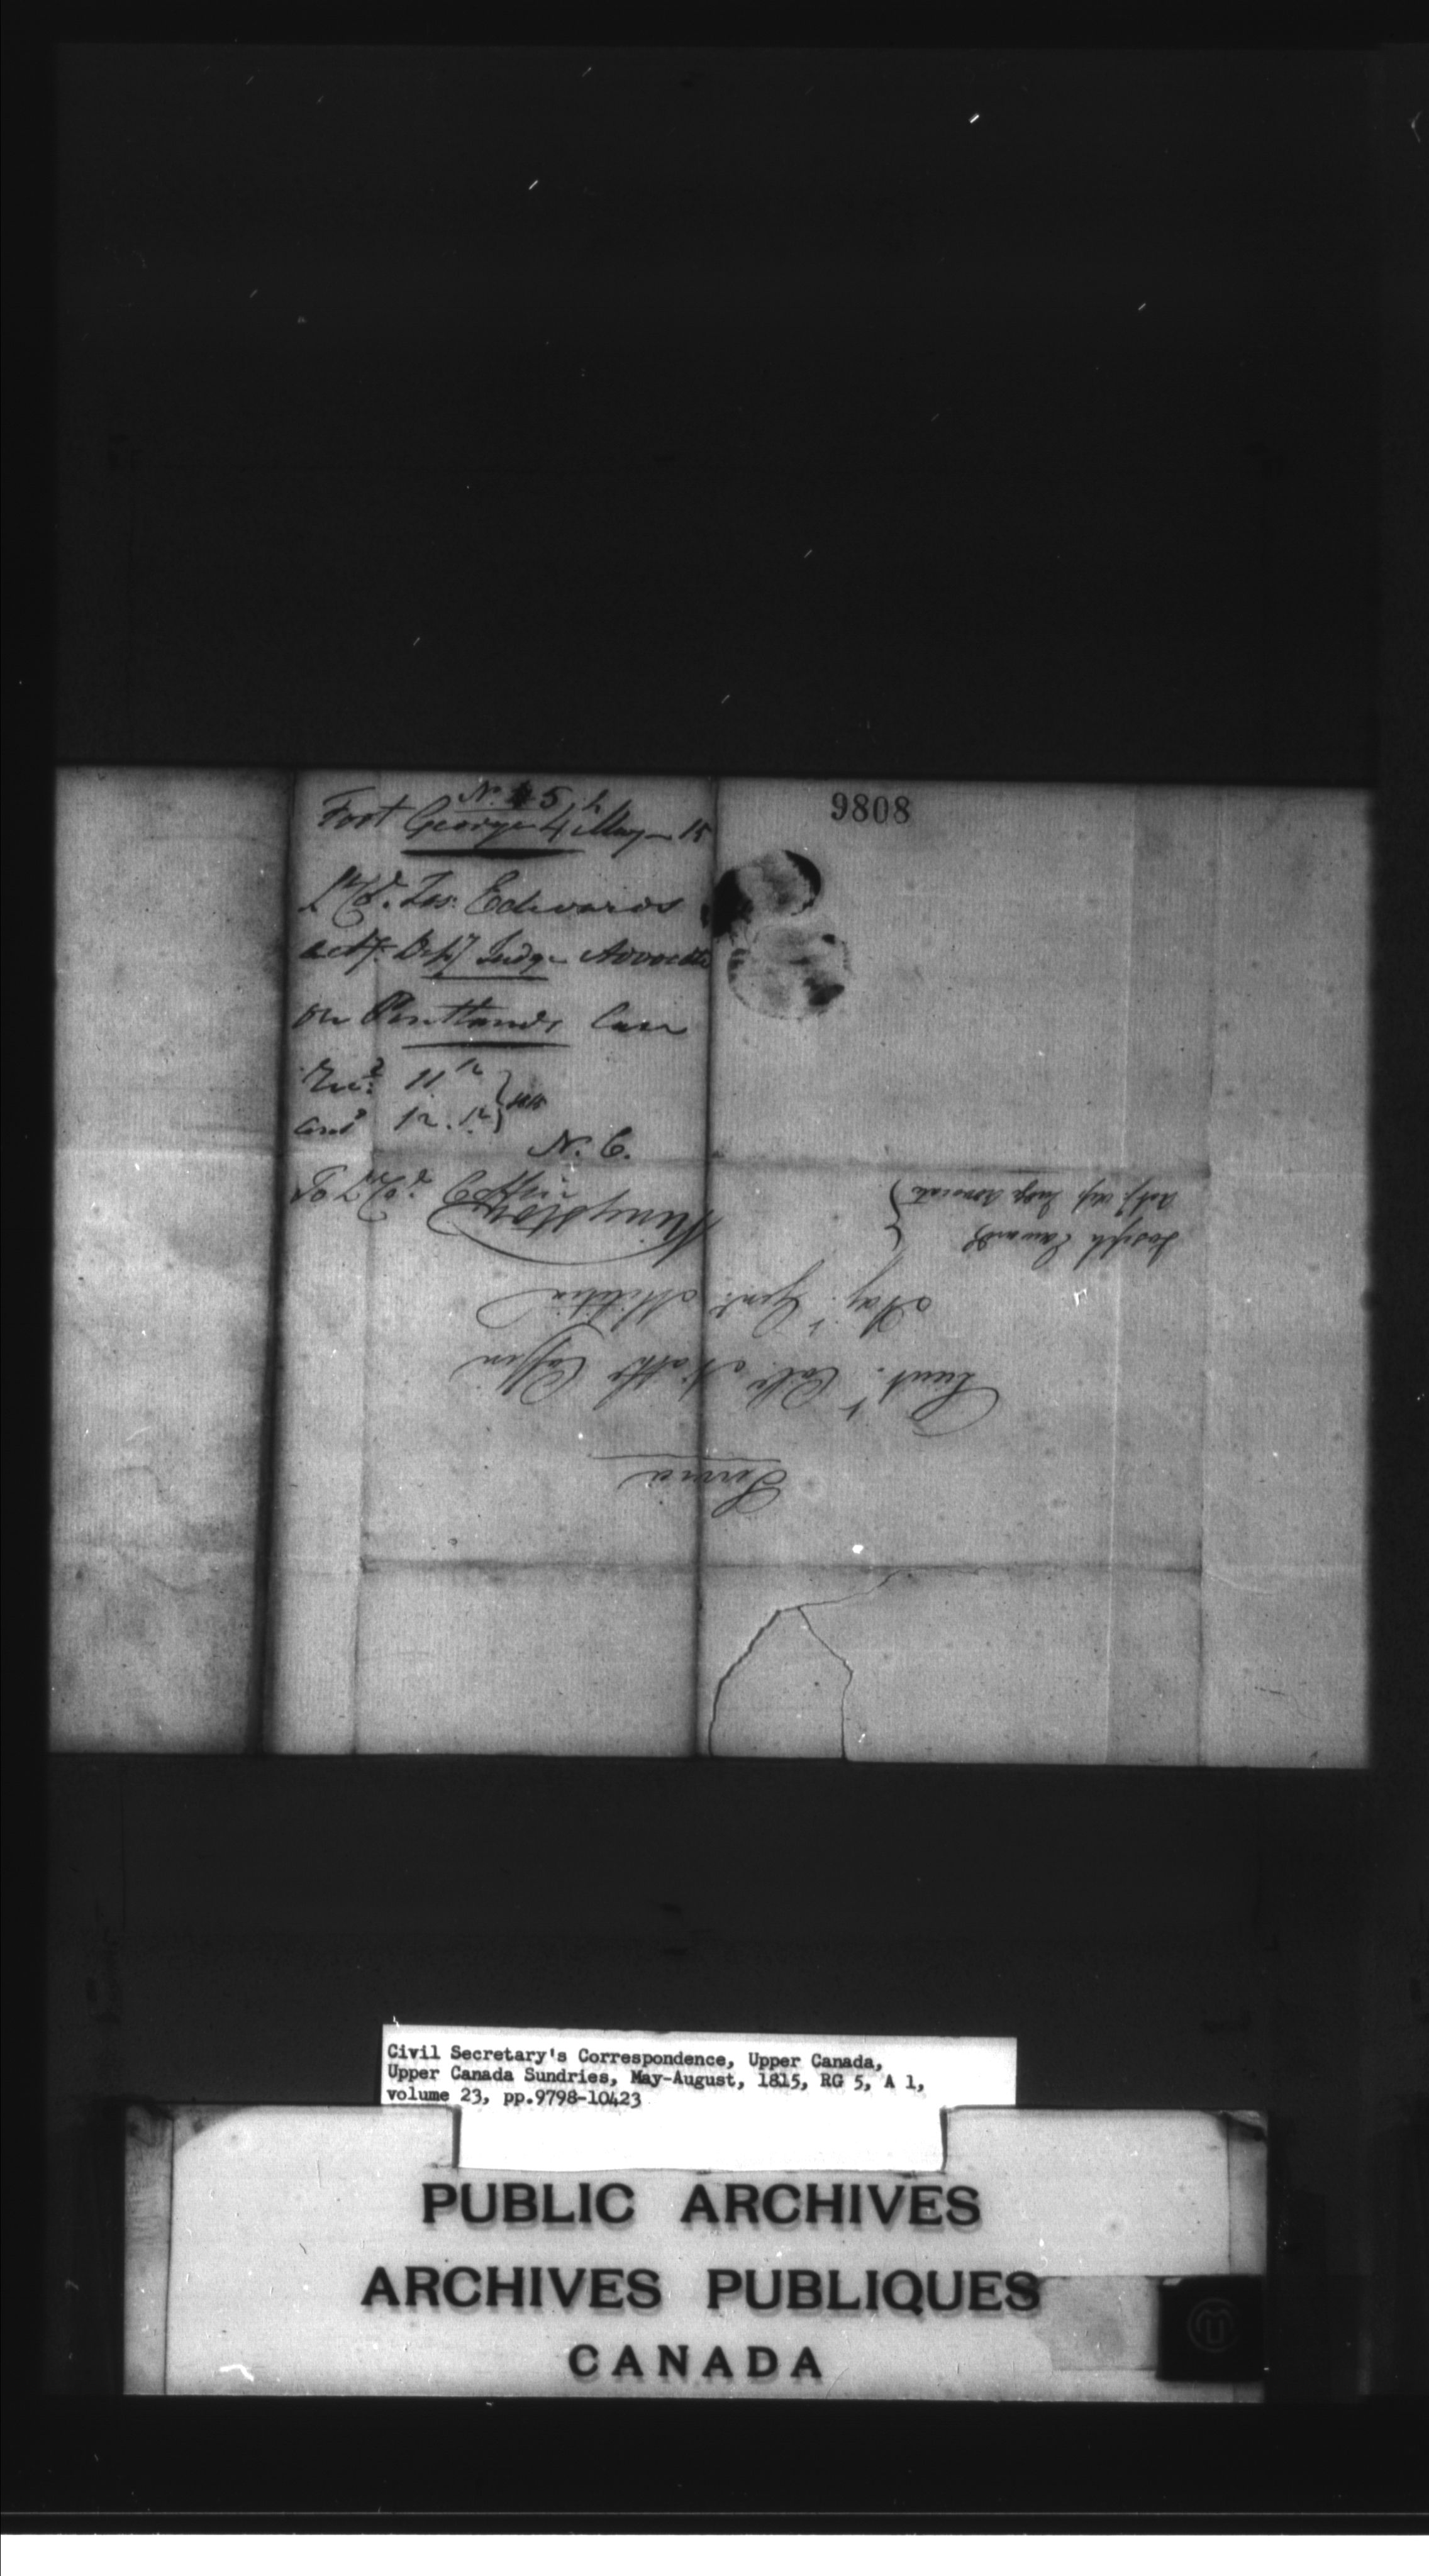 9808
No. 5
Fort George 4 May 15
Lt Col. Jos. Edwards
act'g Dep'y Judge Advocate
on Pentlands Case
Rec'd 11th
Ans'd 12. 1815
N. C.
To Lt Col. Coffin
Service
Lieut. Col. Nath Coffin
Adj. Genl. Militia
Kingston
Joseph Edwards
Act'g Dep. Judge Advocate
Civil Secretary's Correspondence, Upper Canada,
Upper Canada Sundries, May-August, 1815, RG 5, A 1,
volume 23, pp.9798-10423
PUBLIC ARCHIVES
ARCHIVES PUBLIQUES
CANADA